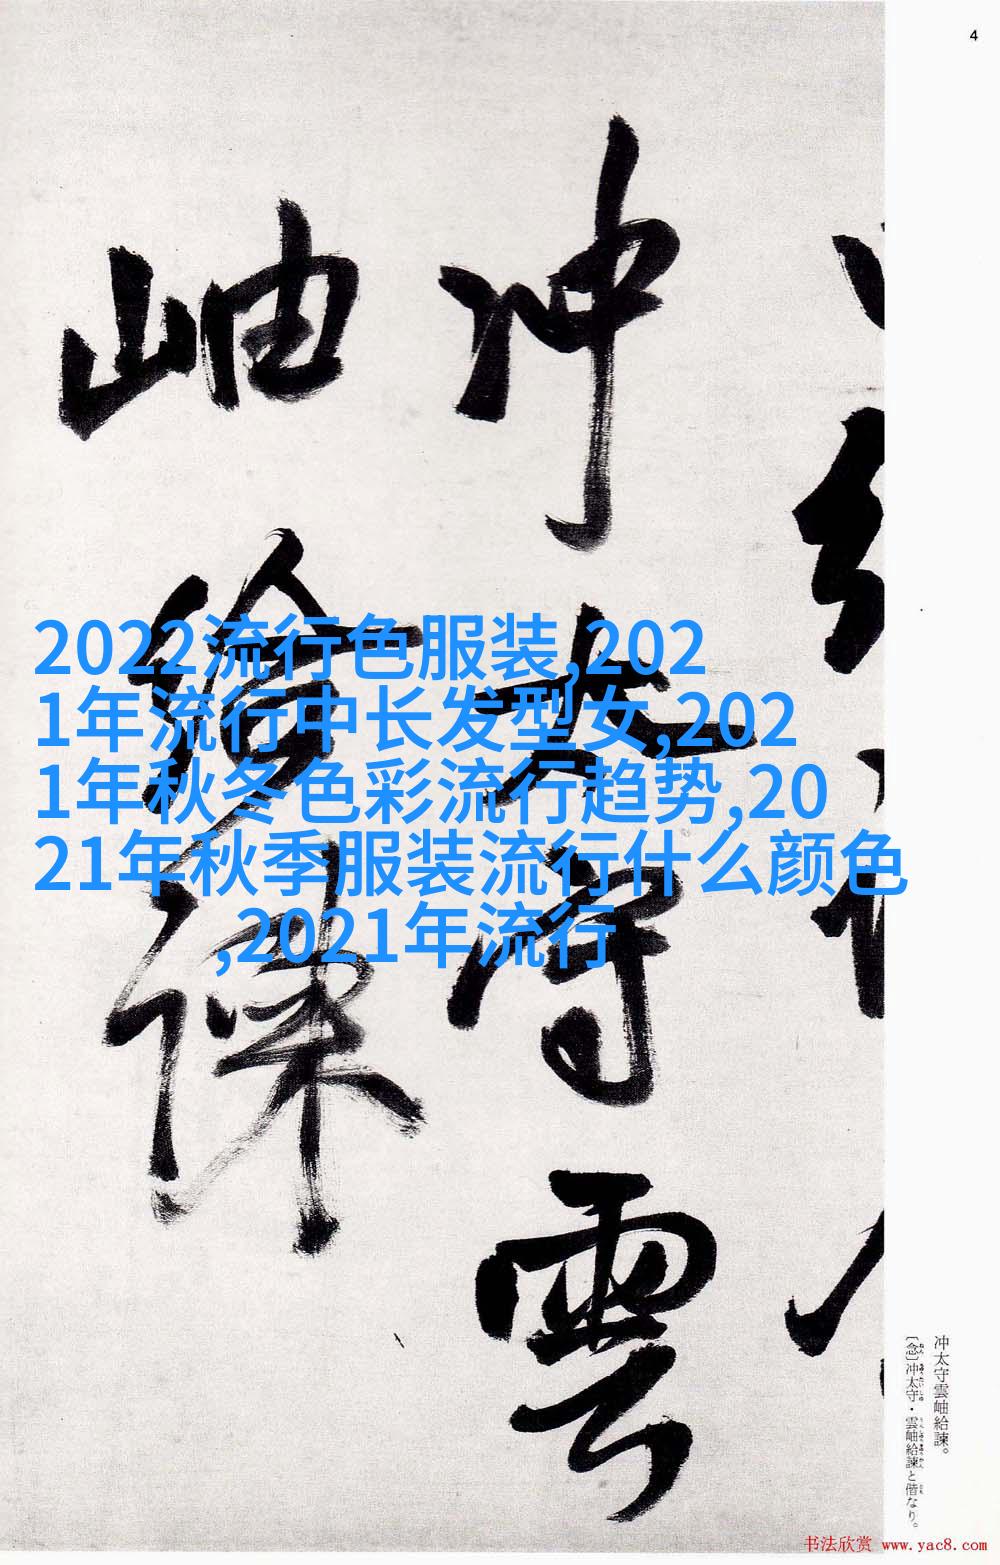 4
冲太守雲
岫給諫
2022流行色服装,202
1年流行中长发型女,202
1年秋冬色彩流行趋势,20
21年秋季服装流行什么颜色
,2021年流行
冲太守雲岫給諫。
〔念〕冲太守・雲岫給諫と偕なり。
书法欣赏 www.yac8.com